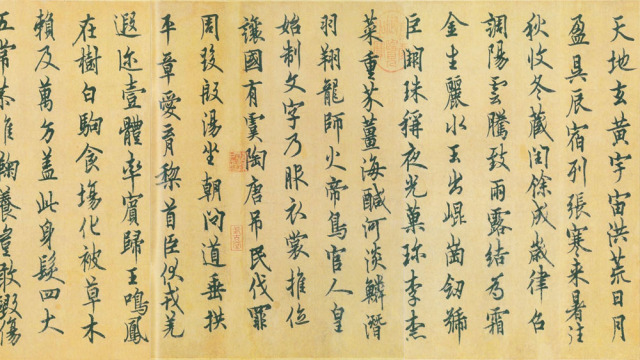 天地玄黃宇宙洪荒日月
盈昃辰宿列張寒來暑往
秋收冬藏閏餘成歲律召
調陽雲騰致雨露結為霜
金生麗水玉出崐崗劒號
巨闕珠稱夜光菓珍李柰
菜重芥薑海鹹河淡鱗潛
羽翔龍師火帝鳥官人皇
始制文字乃服衣裳推位
讓國有虞陶唐吊民伐罪
周發殷湯坐朝問道垂拱
平章愛育黎首臣伏戎羌
遐迩壹體率賓歸王鳴鳳
在樹白駒食場化被草木
賴及萬方蓋此身髮四大
五常恭惟鞠養豈敢毀傷